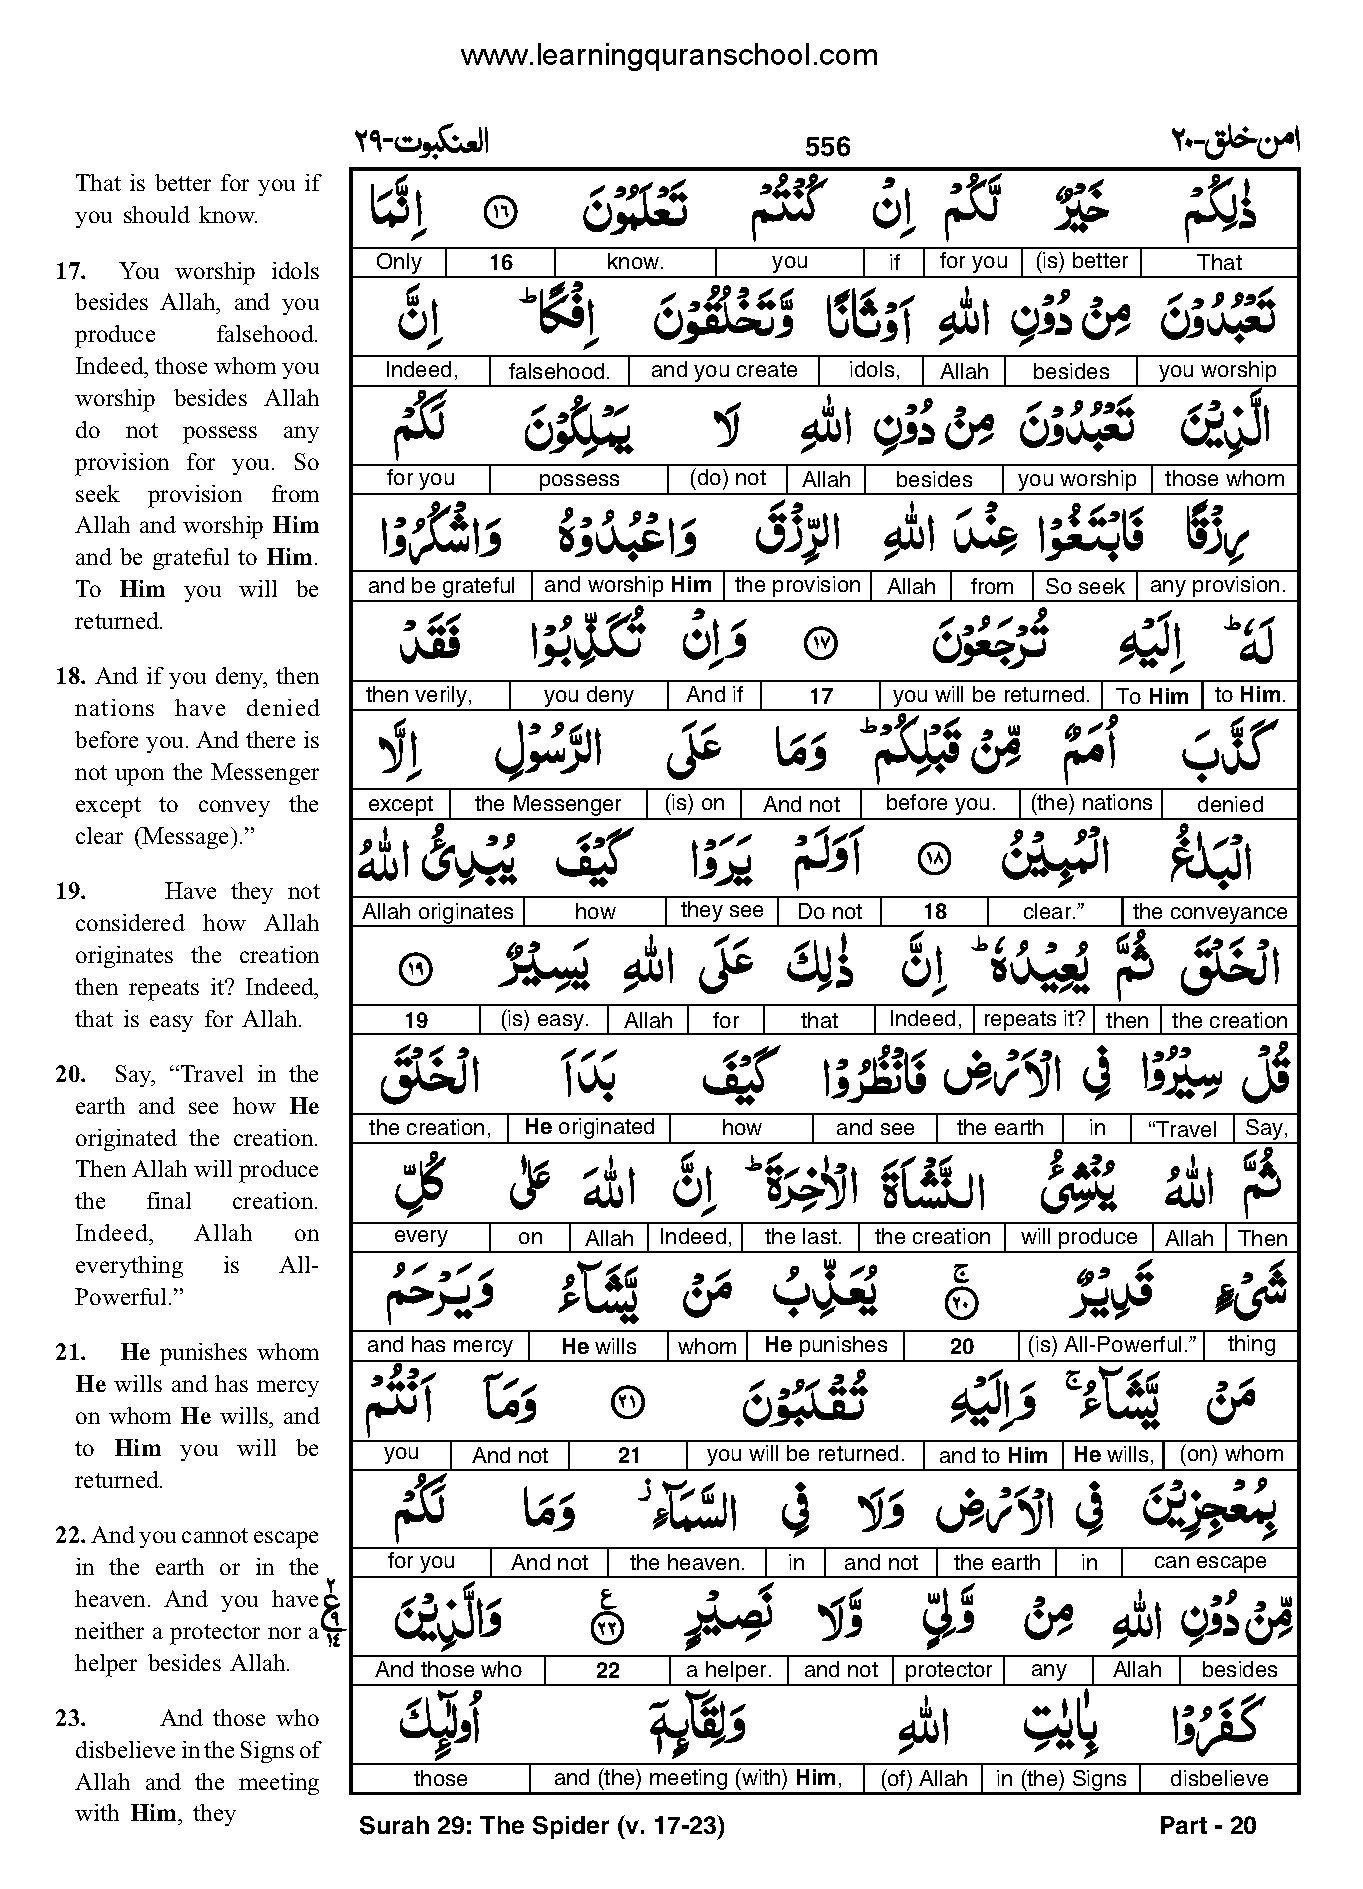 www.learningquranschool.com
العنكبوت-٢٩ 556 امن خلق-٢٠
That is better for you if
you should know.
17. You worship idols
besides Allah, and you
produce falsehood.
Indeed, those whom you
worship besides Allah
do not possess any
provision for you. So
seek provision from
Allah and worship Him
and be grateful to Him.
To Him you will be
returned.
18. And if you deny, then
nations have denied
before you. And there is
not upon the Messenger
except to convey the
clear (Message).”
19. Have they not
considered how Allah
originates the creation
then repeats it? Indeed,
that is easy for Allah.
20. Say, “Travel in the
earth and see how He
originated the creation.
Then Allah will produce
the final creation.
Indeed, Allah on
everything is All-
Powerful.”
21. He punishes whom
He wills and has mercy
on whom He wills, and
to Him you will be
returned.
22. And you cannot escape
in the earth or in the
heaven. And you have
neither a protector nor a
helper besides Allah.
23. And those who
disbelieve in the Signs of
Allah and the meeting
with Him, they
ذٰلِكُمْ خَيْرٌ لَّكُمْ اِنْ كُنْتُمْ تَعْلَمُوْنَ ١٦ اِنَّمَا
Only 16 know. you if for you (is) better That
تَعْبُدُوْنَ مِنْ دُوْنِ اللهِ اَوْثَانًا وَّتَخْلُقُوْنَ اِفْكًا ؕ اِنَّ
Indeed, falsehood. and you create idols, Allah besides you worship
الَّذِيْنَ تَعْبُدُوْنَ مِنْ دُوْنِ اللهِ لَا يَمْلِكُوْنَ لَكُمْ
for you possess (do) not Allah besides you worship those whom
رِزْقًا فَابْتَغُوْا عِنْدَ اللهِ الرِّزْقَ وَاعْبُدُوْهُ وَاشْكُرُوْا
and be grateful and worship Him the provision Allah from So seek any provision.
لَهٗ ؕ اِلَيْهِ تُرْجَعُوْنَ ١٧ وَاِنْ تُكَذِّبُوْا فَقَدْ
then verily, you deny And if 17 you will be returned. To Him to Him.
كَذَّبَ اُمَمٌ مِّنْ قَبْلِكُمْ ؕ وَمَا عَلَى الرَّسُوْلِ اِلَّا
except the Messenger (is) on And not before you. (the) nations denied
الْبَلٰغُ الْمُبِيْنُ ١٨ اَوَلَمْ يَرَوْا كَيْفَ يُبْدِئُ اللهُ
Allah originates how they see Do not 18 clear.” the conveyance
الْخَلْقَ ثُمَّ يُعِيْدُهٗ ؕ اِنَّ ذٰلِكَ عَلَى اللهِ يَسِيْرٌ ١٩
19 (is) easy. Allah for that Indeed, repeats it? then the creation
قُلْ سِيْرُوْا فِى الْاَرْضِ فَانْظُرُوْا كَيْفَ بَدَاَ الْخَلْقَ
the creation, He originated how and see the earth in “Travel Say,
ثُمَّ اللهُ يُنْشِئُ النَّشْاَةَ الْاٰخِرَةَ ؕ اِنَّ اللهَ عَلٰى كُلِّ
every on Allah Indeed, the last. the creation will produce Allah Then
شَىْءٍ قَدِيْرٌ ٢٠ ۚ يُعَذِّبُ مَنْ يَّشَآءُ وَيَرْحَمُ
and has mercy He wills whom He punishes 20 (is) All-Powerful.” thing
مَنْ يَّشَآءُ ۚ وَاِلَيْهِ تُقْلَبُوْنَ ٢١ وَمَآ اَنْتُمْ
you And not 21 you will be returned. and to Him He wills, (on) whom
بِمُعْجِزِيْنَ فِى الْاَرْضِ وَلَا فِى السَّمَآءِ ؗ وَمَا لَكُمْ
for you And not the heaven. in and not the earth in can escape
مِّنْ دُوْنِ اللهِ مِنْ وَّلِىٍّ وَّلَا نَصِيْرٍ ٢٢ ع وَالَّذِيْنَ
٢ ع ٩ ١٤
And those who 22 a helper. and not protector any Allah besides
كَفَرُوْا بِاٰيٰتِ اللهِ وَلِقَآئِهٖٓ اُولٰٓئِكَ
those and (the) meeting (with) Him, (of) Allah in (the) Signs disbelieve
Surah 29: The Spider (v. 17-23) Part - 20